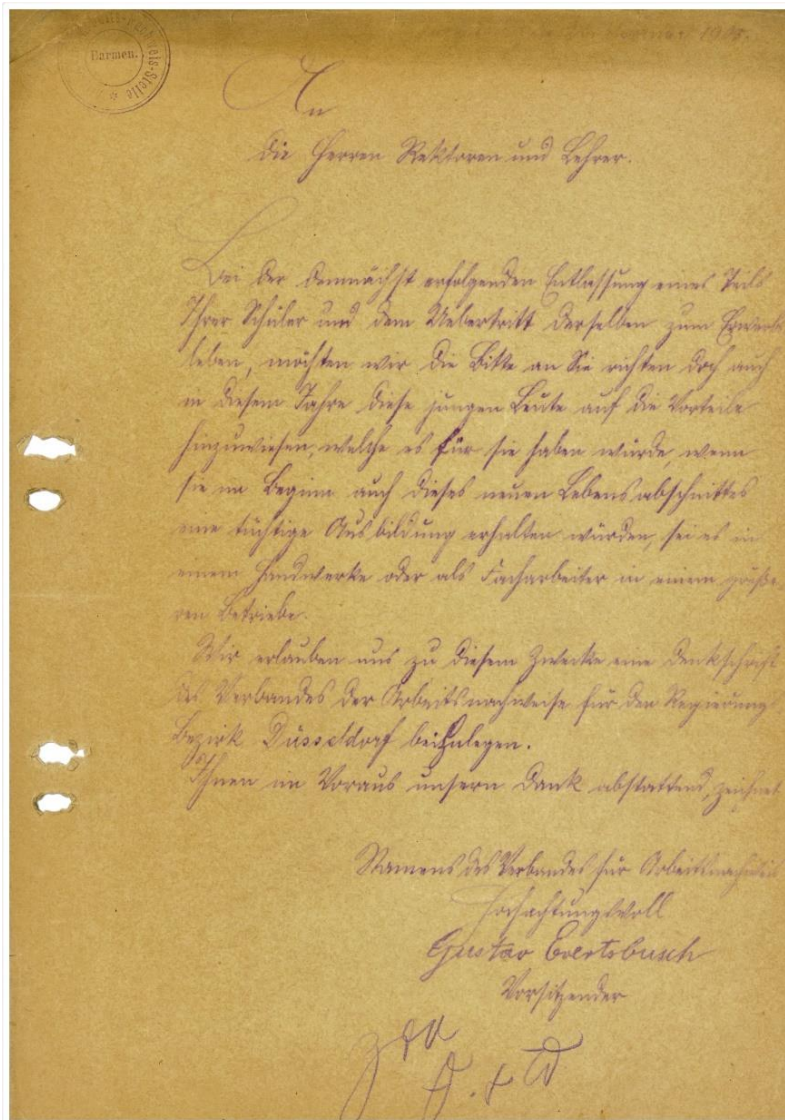 Barmen.
is-Stelle
1905.
An
die Herren Rektoren und Lehrer.
Bei der demnächst erfolgenden Entlassung eines Teils
Ihrer Schüler und dem Uebertritt derselben zum Erwerbs
leben, möchten wir die Bitte an Sie richten doch auch
in diesem Jahre diese jungen Leute auf die Vorteile
hinzuweisen, welche es für sie haben würde, wenn
sie im Beginn auch dieses neuen Lebensabschnittes
eine tüchtige Ausbildung erhalten würden, sei es in
einem Handwerke oder als Facharbeiter in einem größe-
ren Betriebe.
Wir erlauben uns zu diesem Zwecke eine Denkschrift
des Verbandes der Arbeitsnachweise für den Regierungs
Bezirk Düsseldorf beizulegen.
Ihnen im Voraus unsern Dank abstattend, zeichnet
Namens des Verbandes für Arbeitsnachweis
Hochachtungsvoll
Gustav Evertsbusch
Vorsitzender